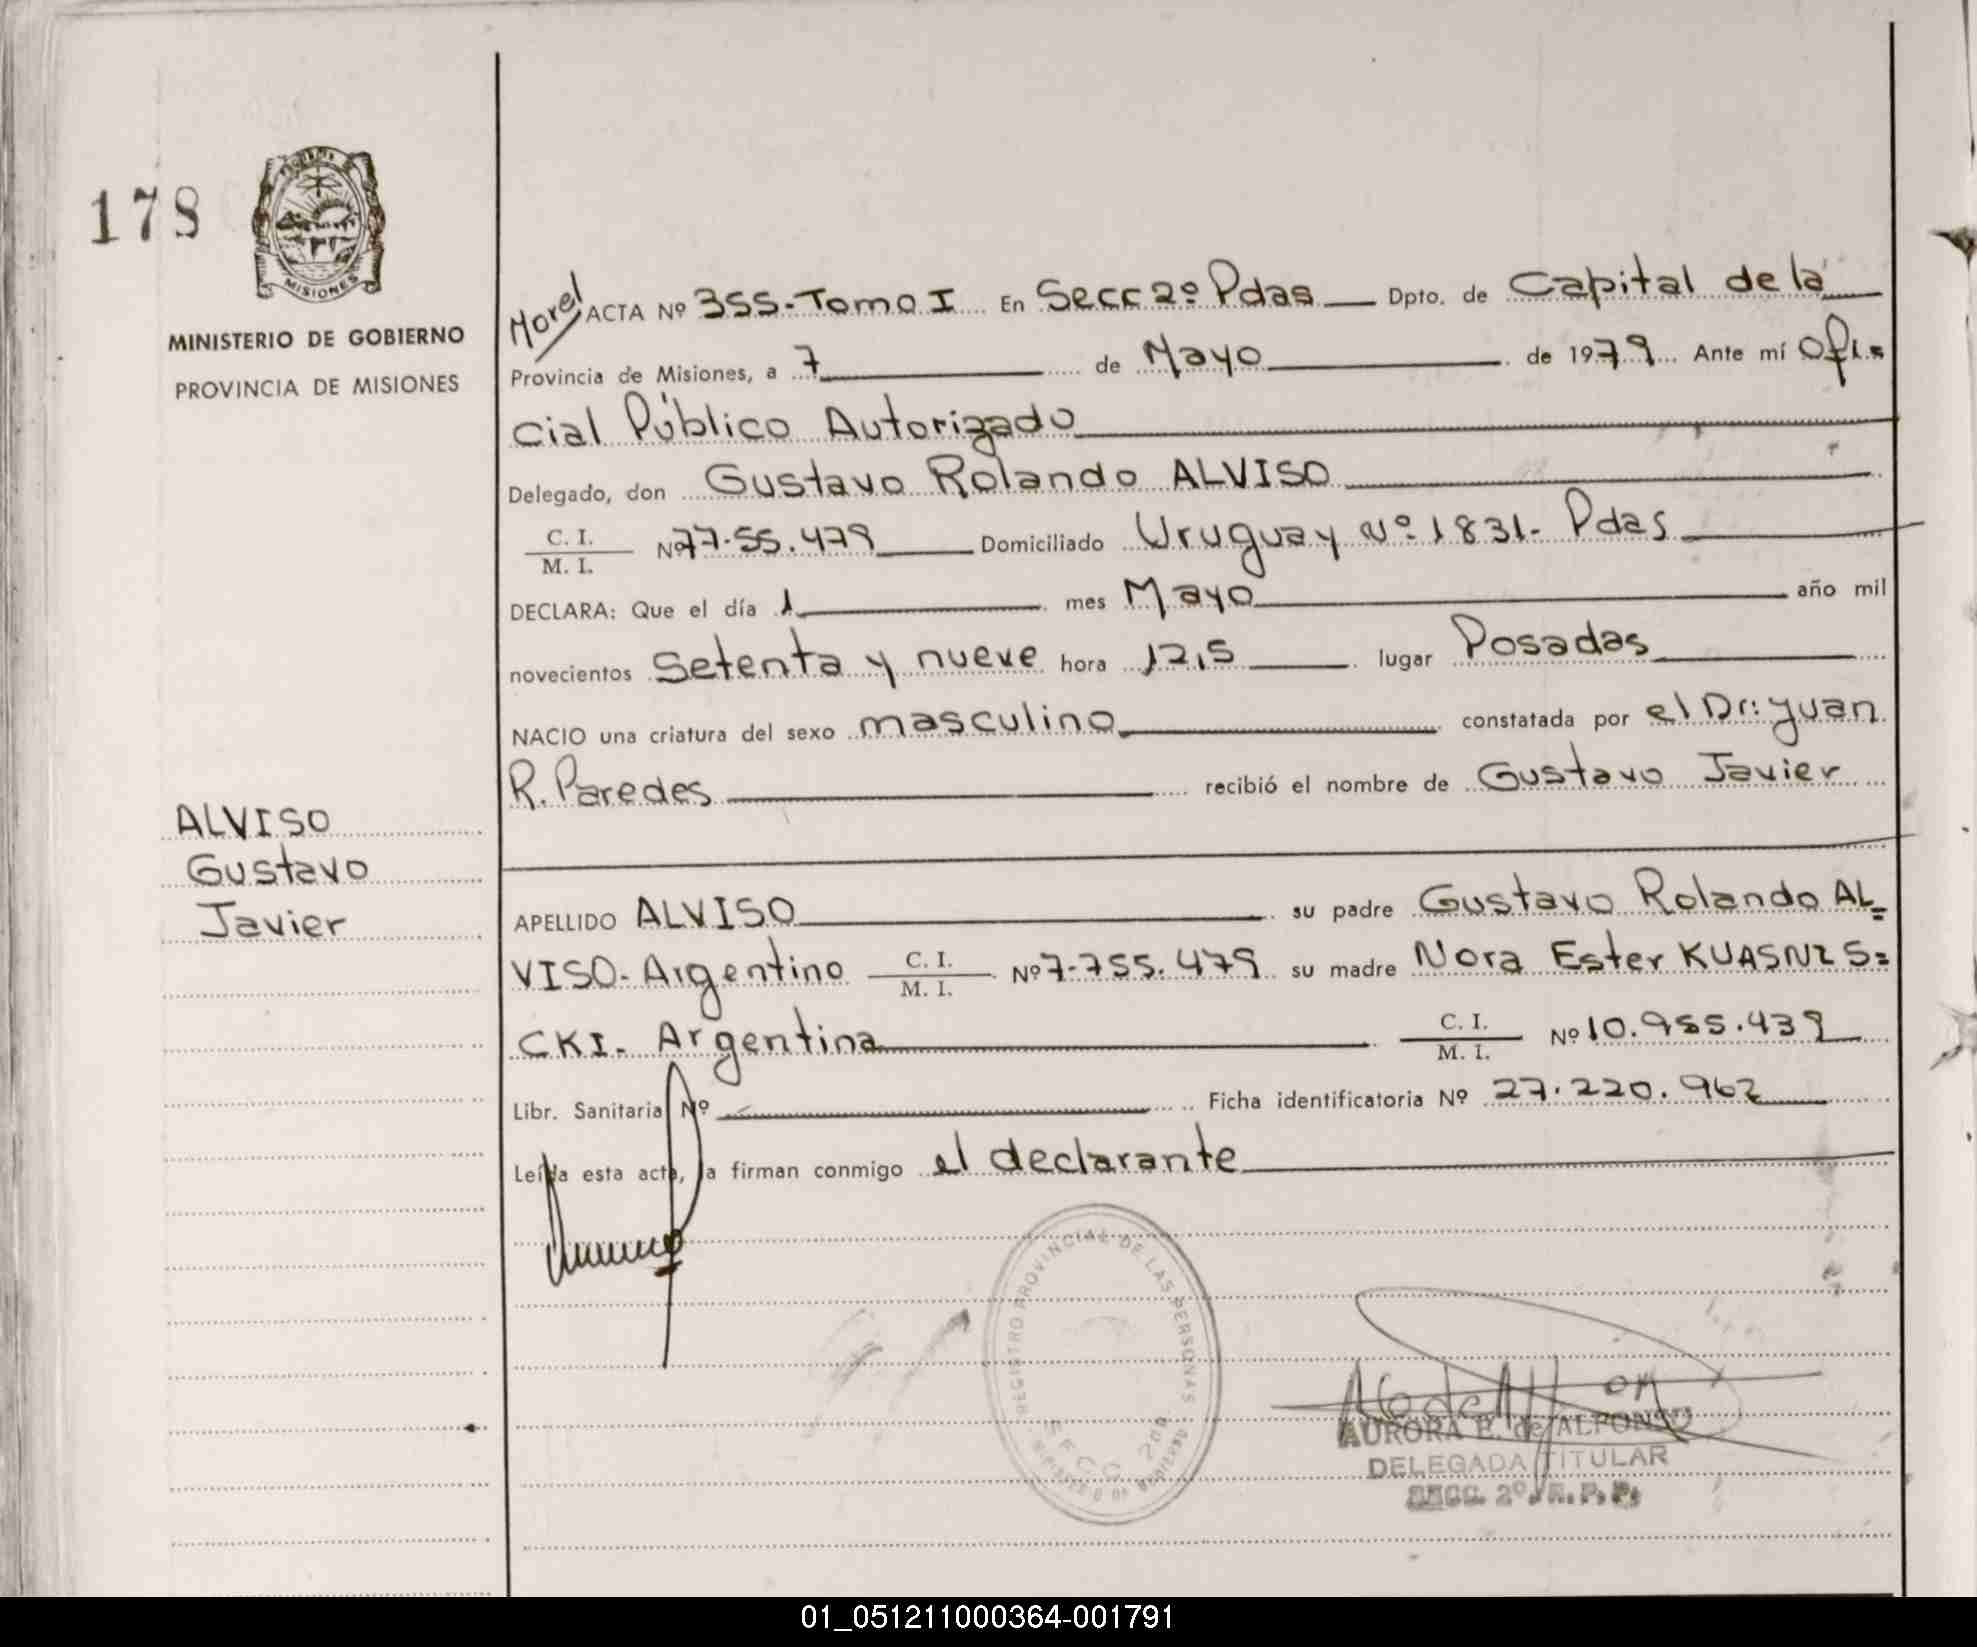 178
MISIONES
MINISTERIO DE GOBIERNO
PROVINCIA DE MISIONES
ALVISO
Gustavo
Javier
Morel
ACTA Nº 355-Tomo I En Secc 2º Pdas Dpto. de Capital de la
Provincia de Misiones, a 7 de Mayo de 1979 Ante mí Ofi=
cial Público Autorizado
Delegado, don Gustavo Rolando ALVISO
C. I.
M. I.
Nº 77.55.479 Domiciliado Uruguay Nº 1831- Pdas
DECLARA: Que el día 1 mes Mayo año mil
novecientos Setenta y nueve hora 12,5 lugar Posadas
NACIO una criatura del sexo masculino constatada por el Dr: Juan
R. Paredes recibió el nombre de Gustavo Javier
APELLIDO ALVISO su padre Gustavo Rolando AL=
VISO- Argentino C. I. M. I. Nº 7-755.479 su madre Nora Ester KUASNIS=
CKI- Argentina C. I. M. I. Nº 10.955.439
Libr. Sanitaria Nº Ficha identificatoria Nº 27.220.962
Leída esta acta, la firman conmigo el declarante
REGISTRO PROVINCIAL DE LAS PERSONAS
SECC 2da
AURORA E. de ALFONSO
DELEGADA TITULAR
SECC. 2º R. P. P.
01_051211000364-001791